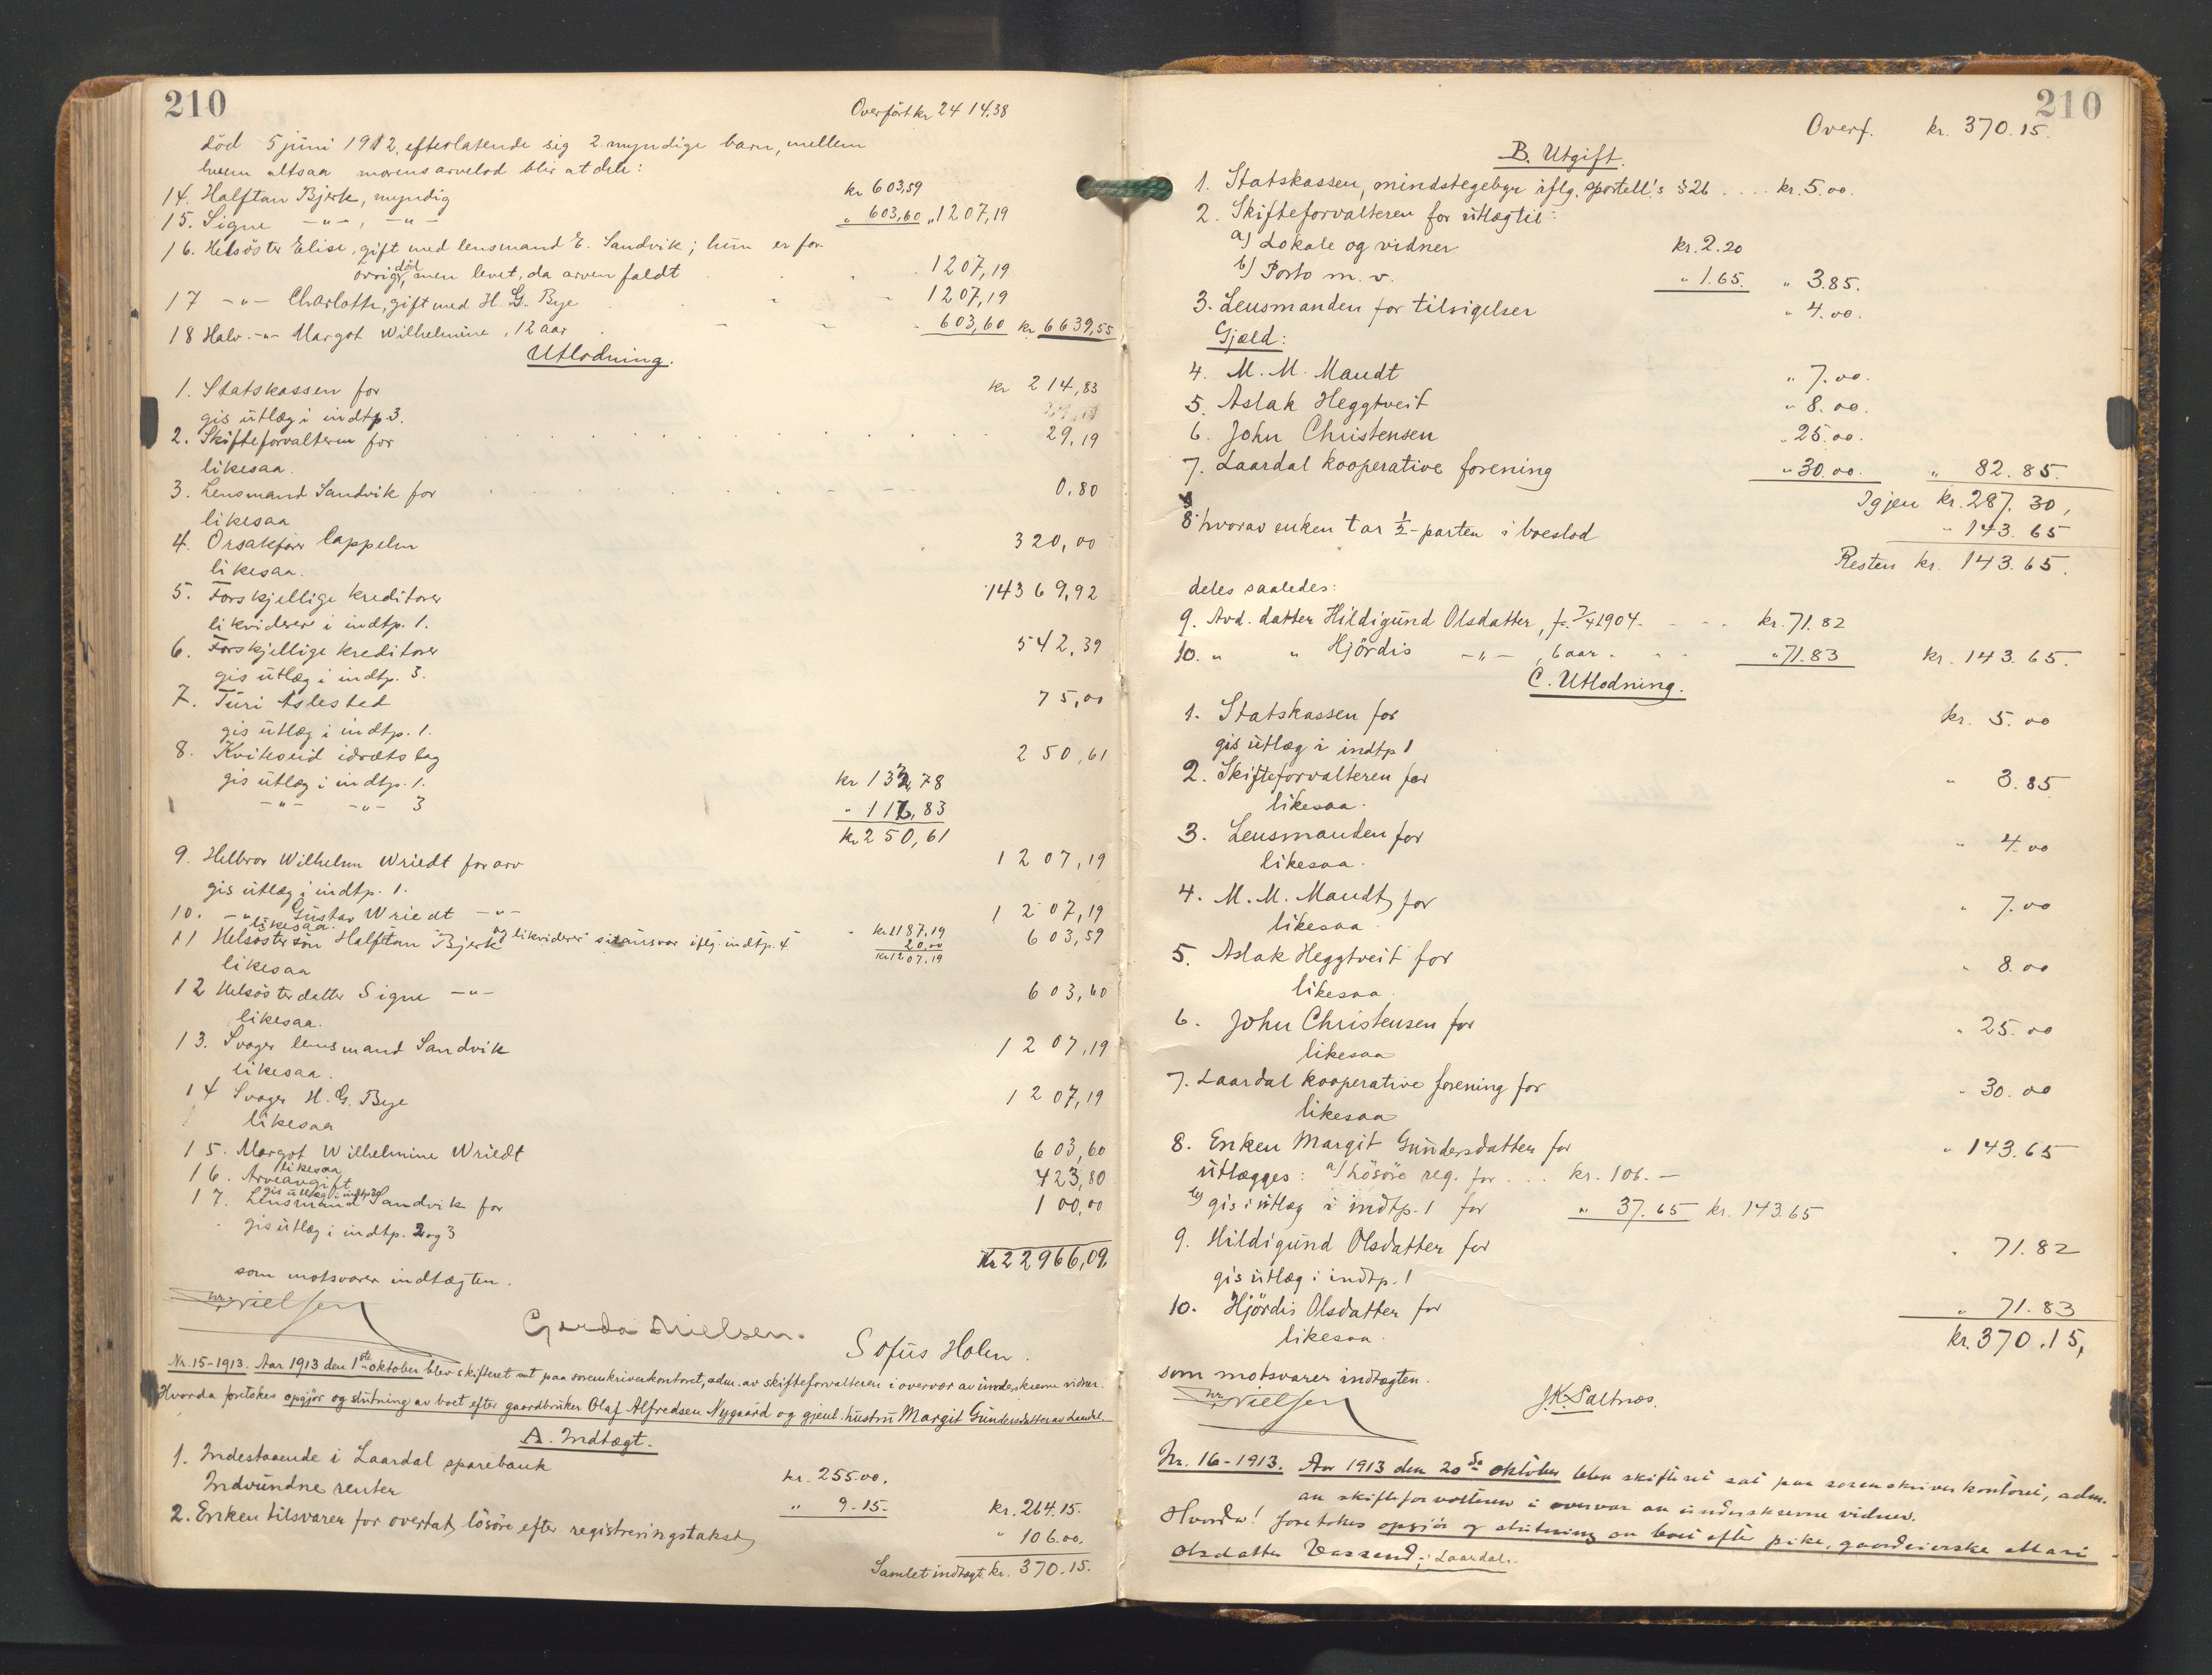 210
Overført kr 2414.38
död 5 juni 1912, efterlatende sig 2 myndige barn, mellem
hvem altsaa morens arvelod blir at dele:
14. Halftan Bjerk, myndig kr 603,59
15. Signe -"-, -"- " 603,60 " 1207,19
16. Helsöster Elise, gift med lensmand E. Sandvik; hun er for-
övrig död, men levet, da arven faldt 1207,19
17 -"- Charlotte, gift med H. G. Bye 1207,19
18 Halv. -"- Margot Wilhelmine, 12 aar 603,60 kr 6639,55
Utlodning.
1. Statskassen for kr 214,83
gis utlæg i indtp 3.
2. Skifteforvalteren for 29,19
likesaa.
3. Lensmand Sandvik for 0,80
likesaa
4. Orsakförer Cappelen 320,00
likesaa.
5. Forskjellige kreditorer 14369,92
likviderer i indtp. 1.
6. Forskjellige kreditorer 542,39
gis utlæg i indtp. 3.
7. Turi Aslested 75,00
gis utlæg i indtp. 1.
8. Kviteseid idrætslag 250,61
gis utlæg i indtp. 1. kr 133,78
-"- -"- 3 " 116,83
kr 250,61
9. Helbror Wilhelm Wriedt for arv 1207,19
gis utlæg i indtp. 1.
10. -"- Gustav Wriedt -"- 1207,19
likesaa. og likviderer sit ansvar iflg. indtp. 4 kr 1187.19
20,00
kr 1207.19
11 Helsöstersön Halftan Bjerk 603,59
likesaa
12 Helsösterdatter Signe -"- 603,60
likesaa.
13. Svoger lensmand Sandvik 1207,19
likesaa.
14 Svoger H. G. Bye 1207,19
likesaa
15. Margot Wilhelmine Wriedt 603,60
likesaa
16. Arveavgift 423,80
gis utlæg i indtp 3
17. Lensmand Sandvik for 100,00
gis utlæg i indtp. 2 og 3
Kr 22966,09.
som motsvarer indtægten.
Nielsen
Gerda Nielsen.
Sofus Holm.
Nr. 15-1913. Aar 1913 den 1ste oktober blev skifteret sat paa sorenskriverkontoret, adm. av skifteforvalteren i overvær av underskrevne vidner.
Hvorda foretokes opgjör og slutning av boet efter gaardbruker Olaf Alfredsen Nygaard og gjenl. hustru Margit Gundersdatter av Laardal.
A. Indtægt.
1. Indestaaende i Laardal sparebank kr. 255.00.
Indvundne renter " 9.15. kr. 264.15.
2. Enken tilsvarer for overtat lösöre efter registreringstakst " 106.00.
Samlet indtægt kr. 370.15.
210
Overf. kr. 370.15.
B. Utgift.
1. Statskassen, mindstegebyr iflg. sportell's § 26 .... kr. 5.00.
2. Skifteforvalteren for utlæg til:
a) Lokale og vidner kr. 2.20
b) Porto m. v. " 1.65. " 3.85.
3. Lensmanden for tilsigelser " 4.00.
Gjæld:
4. M. M. Mandt " 7.00.
5. Aslak Heggtveit " 8.00.
6. John Christensen " 25.00.
7. Laardal kooperative forening " 30.00. " 82.85.
Igjen kr. 287.30,
8. hvorav enken tar ½-parten i boeslod " 143.65
Resten kr. 143.65.
deles saaledes:
9. Avd. datter Hildigund Olsdatter, f. 7/4 1904. - - - kr. 71.82
10. " " Hjördis -"-, 6 aar. - - " 71.83 kr. 143.65.
C. Utlodning.
1. Statskassen for kr. 5.00
gis utlæg i indtp 1
2. Skifteforvalteren for " 3.85
likesaa.
3. Lensmanden for " 4.00
likesaa.
4. M. M. Mandt for " 7.00
likesaa.
5. Aslak Heggtveit for " 8.00
likesaa.
6. John Christensen for " 25.00
likesaa
7. Laardal kooperative forening for " 30.00
likesaa
8. Enken Margit Gundersdatter for " 143.65
utlægges: a) Lösöre reg. for ... kr. 106.-
b) gis i utlæg i indtp. 1 for " 37.65 kr. 143.65
9. Hildigund Olsdatter for " 71.82
gis utlæg i indtp. 1
10. Hjördis Olsdatter for " 71.83
likesaa. kr. 370.15,
som motsvarer indtægten.
Nielsen
J.K. Saltnes.
Nr. 16-1913. Aar 1913 den 20de oktober blev skifteret sat paa sorenskriverkontoret, adm.
av skifteforvalteren i overvær av underskrevne vidner.
Hvorda! foretokes opgjör og slutning av boet efter pike, gaardeierske Mari
Olsdatter Vassend, i Laardal.